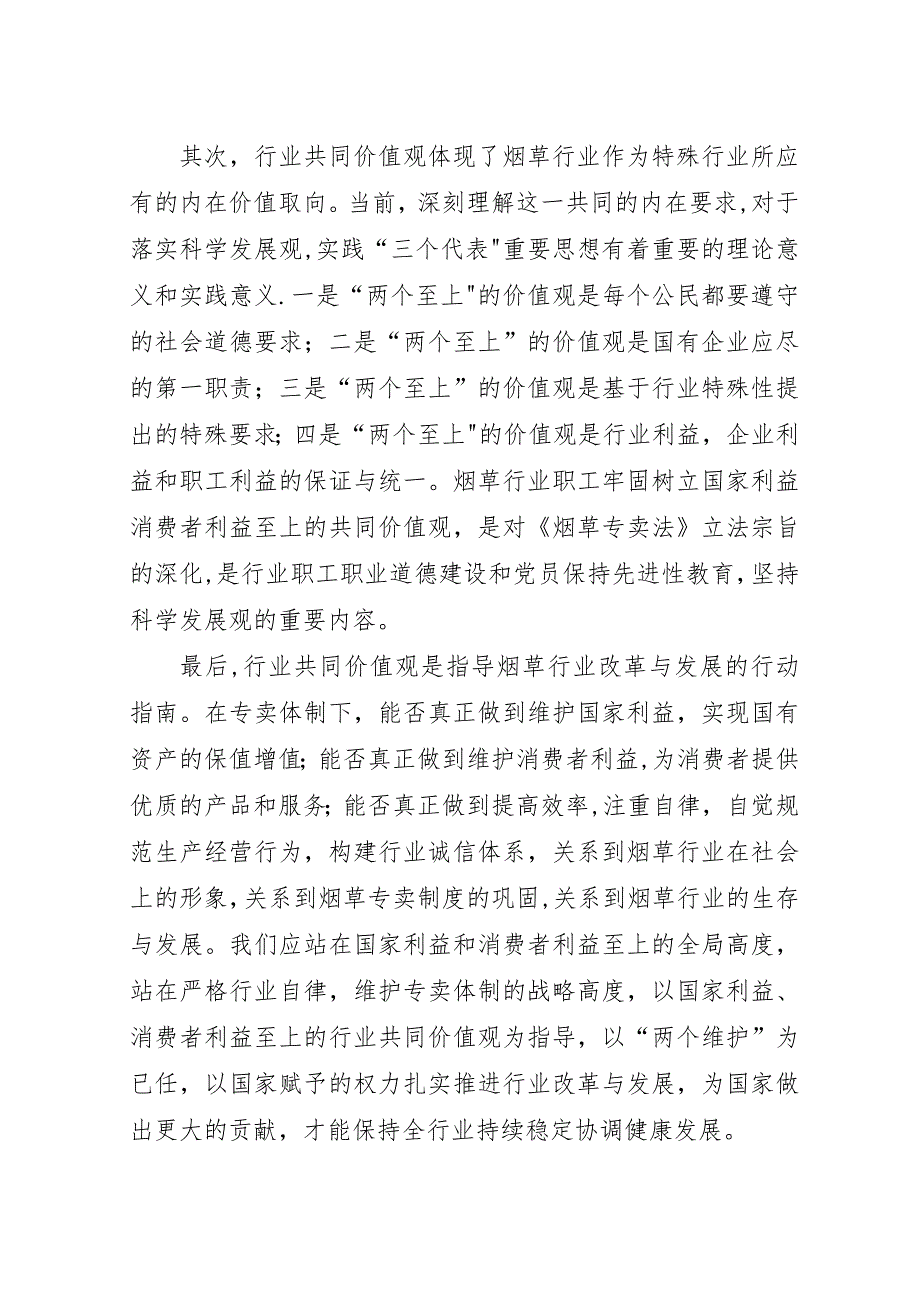 其次，行业共同价值观体现了烟草行业作为特殊行业所应
有的内在价值取向。当前，深刻理解这一共同的内在要求,对于
落实科学发展观,实践“三个代表"重要思想有着重要的理论意
义和实践意义.一是“两个至上"的价值观是每个公民都要遵守
的社会道德要求；二是“两个至上”的价值观是国有企业应尽
的第一职责；三是“两个至上”的价值观是基于行业特殊性提
出的特殊要求；四是“两个至上"的价值观是行业利益，企业利
益和职工利益的保证与统一。烟草行业职工牢固树立国家利益
消费者利益至上的共同价值观，是对《烟草专卖法》立法宗旨
的深化,是行业职工职业道德建设和党员保持先进性教育，坚持
科学发展观的重要内容。
最后,行业共同价值观是指导烟草行业改革与发展的行动
指南。在专卖体制下，能否真正做到维护国家利益，实现国有
资产的保值增值；能否真正做到维护消费者利益,为消费者提供
优质的产品和服务；能否真正做到提高效率,注重自律，自觉规
范生产经营行为，构建行业诚信体系，关系到烟草行业在社会
上的形象，关系到烟草专卖制度的巩固,关系到烟草行业的生存
与发展。我们应站在国家利益和消费者利益至上的全局高度，
站在严格行业自律，维护专卖体制的战略高度，以国家利益、
消费者利益至上的行业共同价值观为指导，以“两个维护”为
己任，以国家赋予的权力扎实推进行业改革与发展，为国家做
出更大的贡献，才能保持全行业持续稳定协调健康发展。